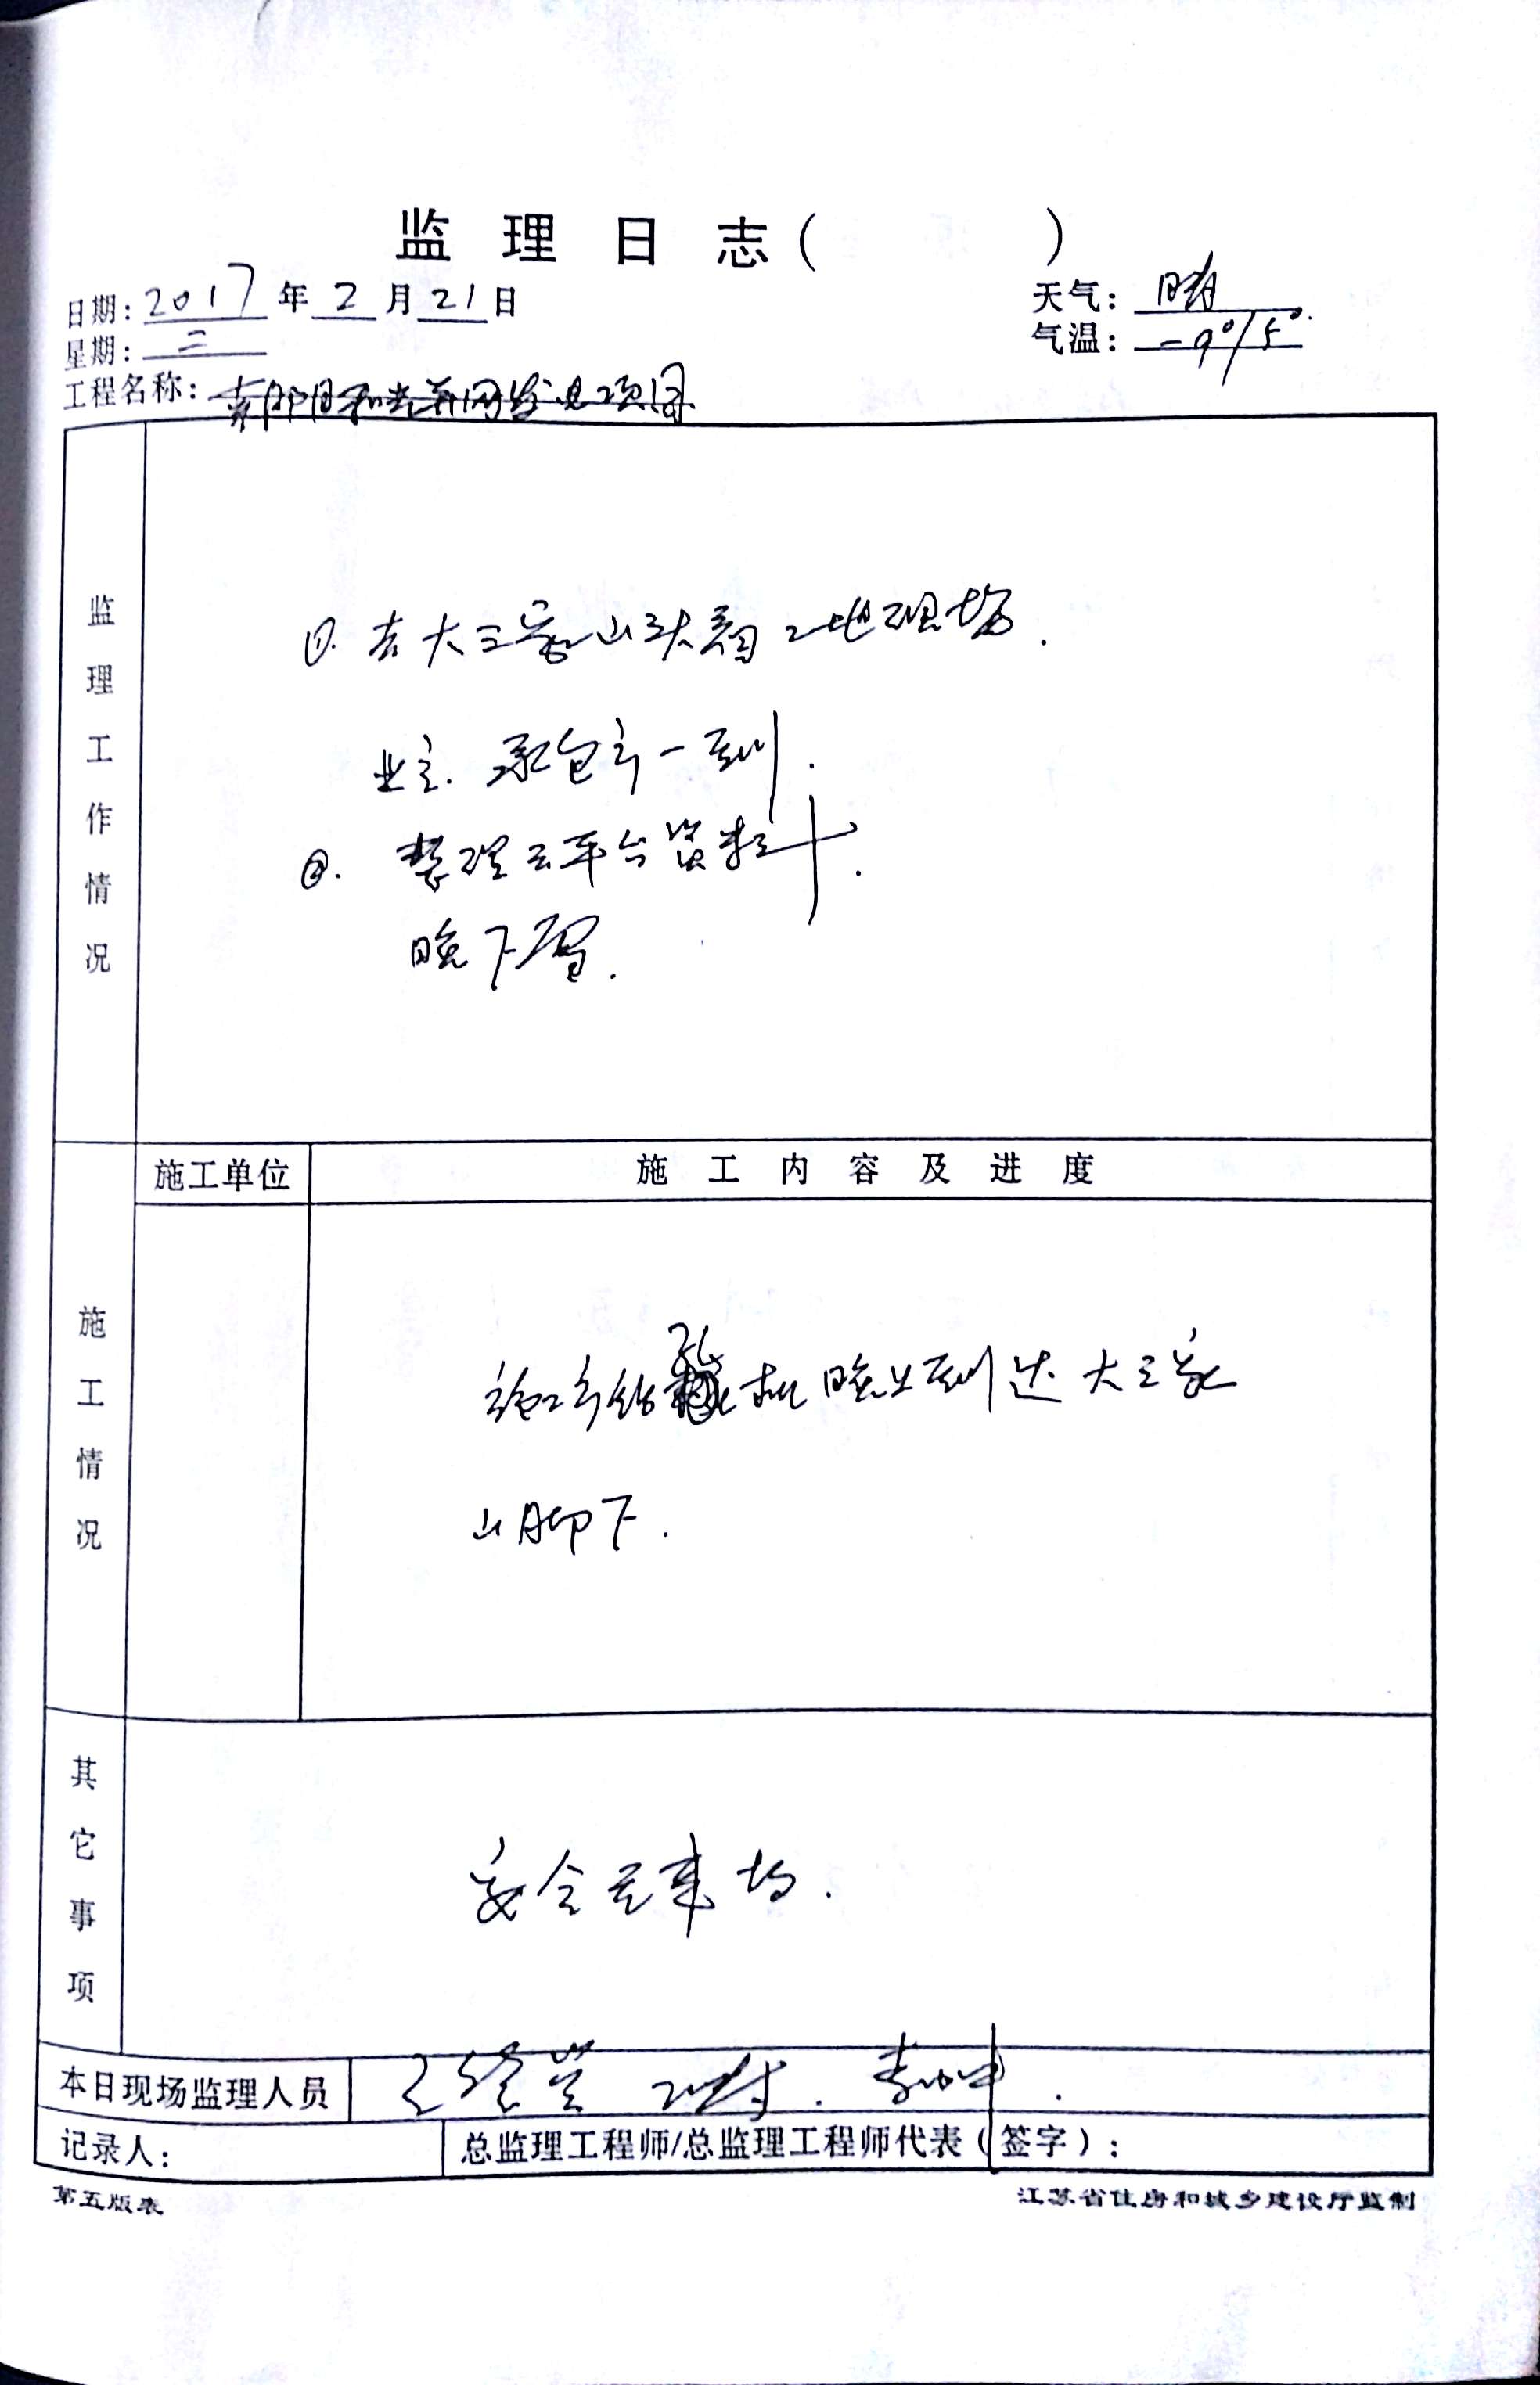 监理日志(        )
日期:2017年2月21日
天气:晴
星期:二
气温:-9°/5°.
工程名称:光并网发电项目
监理工作情况
①.去大三家山头看工地现场.
业主.承包方一到.
②.整理云平台资料.
晚下雪.
施工单位
施工内容及进度
施工情况
施工方钻孔机晚上到达大三家
山脚下.
其它事项
安全无事故.
本日现场监理人员
记录人:
总监理工程师/总监理工程师代表(签字):
第五版表
江苏省住房和城乡建设厅监制